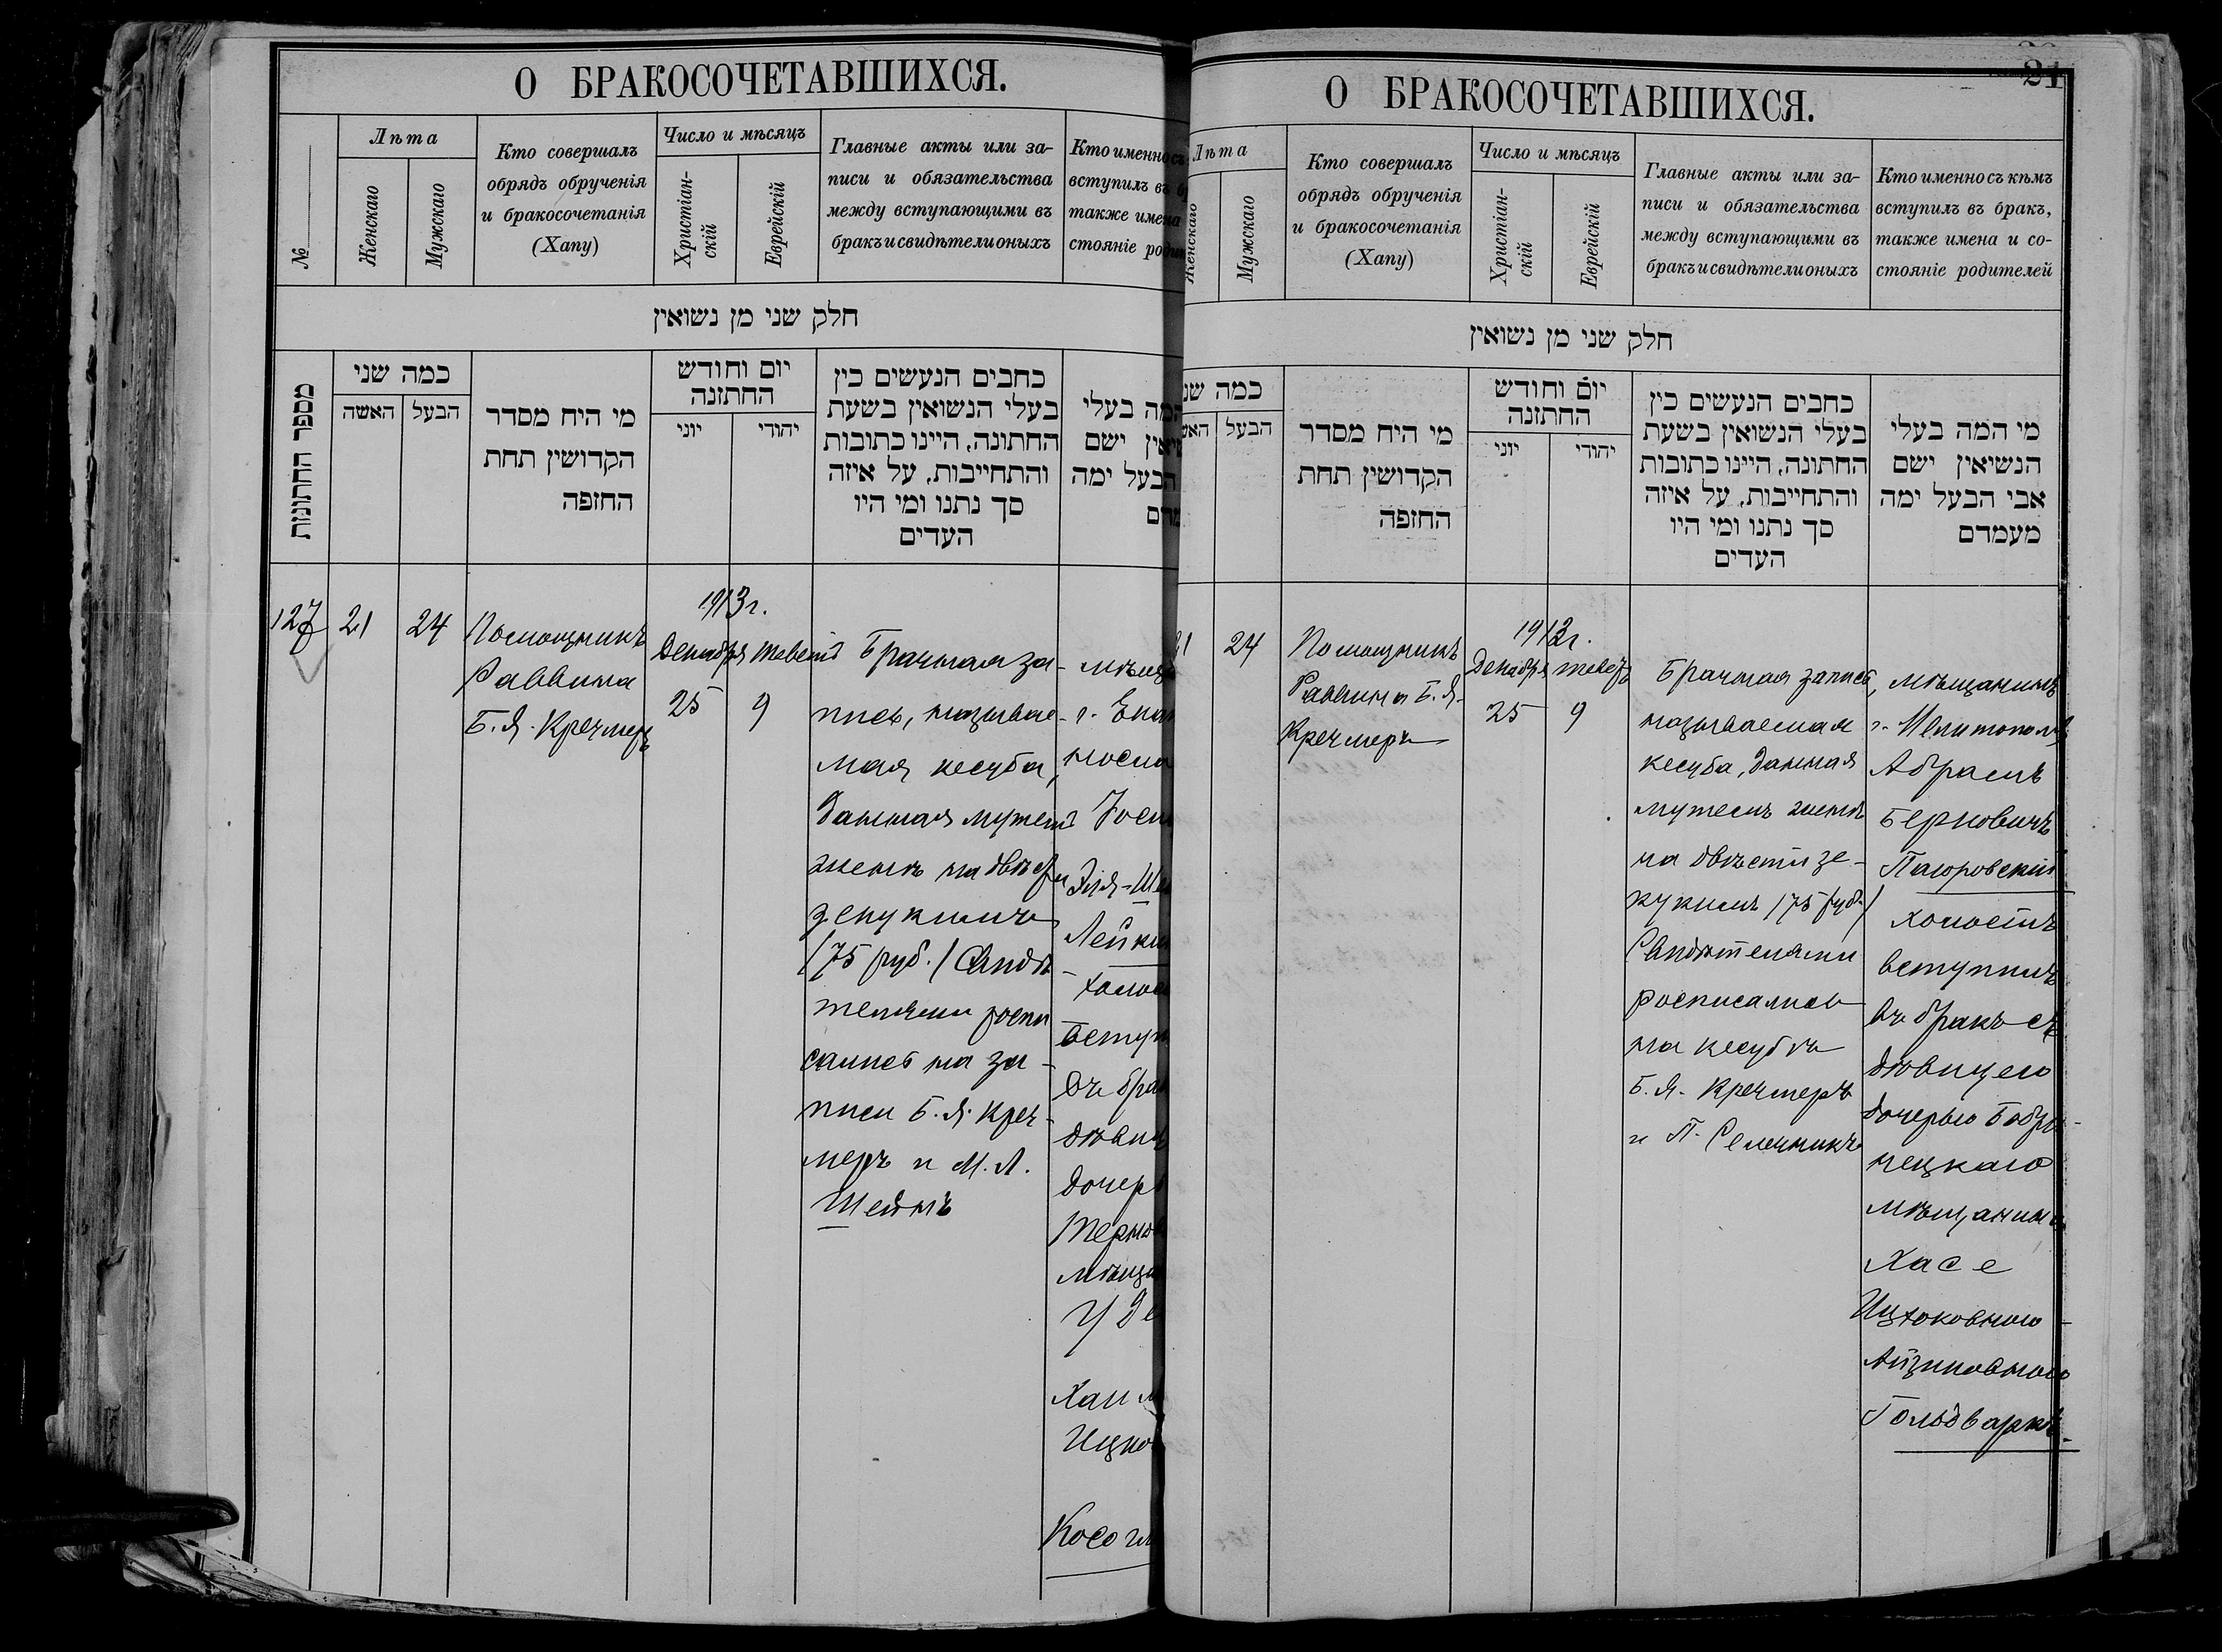 О БРАКОСОЧЕТАВШИХСЯ.
№
Лѣта
Женскаго
Мужскаго
Кто совершалъ
обрядъ обрученія
и бракосочетанія
(Хапу)
Число и мѣсяцъ
Христіан-
скій
Еврейскій
Главные акты или за-
писи и обязательства
между вступающими въ
бракъ и свидѣтели оныхъ
Кто именно съ
вступилъ въ
также имена
стояніе
חלק שני מן נשואין
מספר החתונות
כמה שני
האשה
הבעל
מי היח מסדר
הקדושין תחת
החזפה
יום וחודש
החתזנה
יוני
יהודי
כחבים הנעשים כין
בעלי הנשואין בשעת
החתונה, היינו כתובות
והתחייבות, על איזה
סך נתנו ומי היו
העדים
המה בעלי
ישם
הבעל ימה
127
21
24
Помощникъ
Раввина
Б. Я. Кречмеръ
1913 г.
Декабря
25
Теветъ
9
Брачная за-
пись, называе-
мая кесуба,
данная мужемъ
женѣ на двѣсти
зекукимъ
/75 руб./ Свидѣ
телями распи
сались на за-
писи Б. Я. Креч-
меръ и М. Л.
Шейнъ
г.
Эля-
Хаим
Ицко
21
О БРАКОСОЧЕТАВШИХСЯ.
Лѣта
Женскаго
Мужскаго
Кто совершалъ
обрядъ обрученія
и бракосочетанія
(Хапу)
Число и мѣсяцъ
Христіан-
скій
Еврейскій
Главные акты или за-
писи и обязательства
между вступающими въ
бракъ и свидѣтели оныхъ
Кто именно съ кѣмъ
вступилъ въ бракъ,
также имена и со-
стояніе родителей
חלק שני מן נשואין
כמה
הבעל
מי היח מסדר
הקדושין תחת
החזפה
יום וחודש
החתזנה
יוני
יהודי
כחבים הנעשים כין
בעלי הנשואין בשעת
החתונה, היינו כתובות
והתחייבות, על איזה
סך נתנו ומי היו
העדים
מי המה בעלי
הנשיאין ישם
אבי הבעל ימה
מעמדם
24
Помощникъ
Раввина Б. Я.
Кречмеръ
1913 г.
Декабря
25
Теветъ
9
Брачная запись,
называемая
кесуба, данная
мужемъ женѣ
на двѣсти зе-
кукимъ /75 руб./
Свидѣтелями
росписались
на кесубѣ
Б. Я. Кречмеръ
и П.
мѣщанинъ
г. Мелитополя
Абрамъ
Берковичъ
холостъ
вступилъ
въ бракъ съ
дѣвицею
дочерью Бобри-
нецкаго
мѣщанина
Хасе
Ицхоковною
Айзиковною